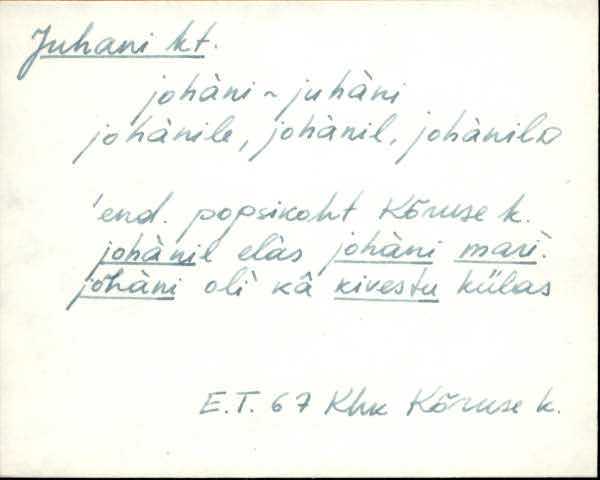 Juhani kt.
johàni ~ juhàni
johànile, johànil, johànilD
'end. popsikoht Kõruse k.
johànil elàs johàni mari.
johàni olì kâ kivestu külas
E.T. 67 Khk Kõruse k.